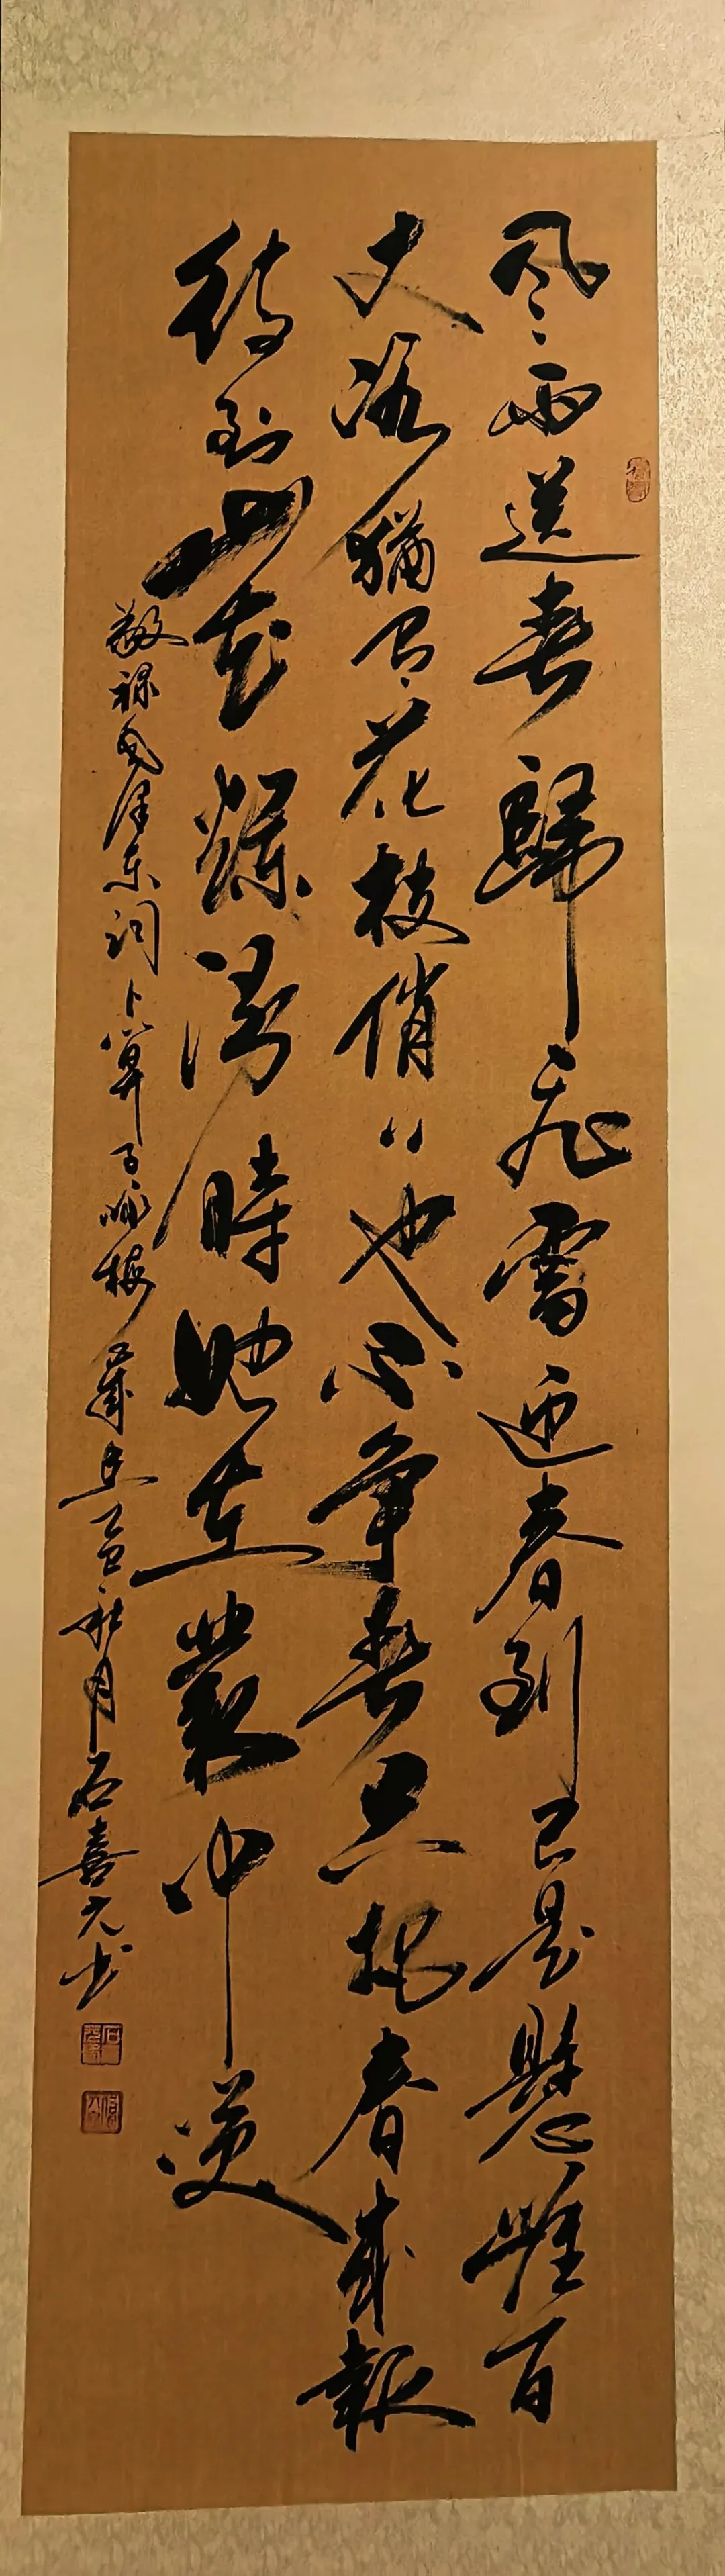 风雨送春歸飛雪迎春到已是懸崖百
丈冰猶有花枝俏〻也不爭春只把春来報
待到山花爛漫時她在叢中笑
敬錄毛澤东词卜算子咏梅 歲在乙巳秋月 石喜元书